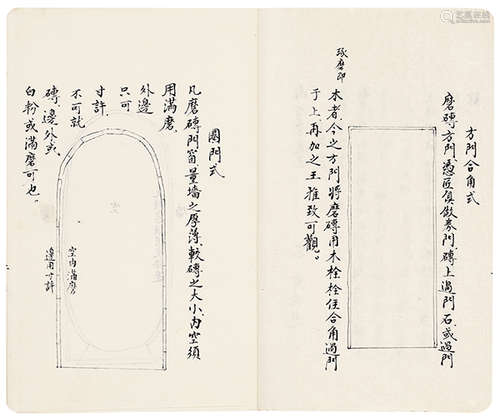 方門合角式
磨磚方門憑匠俱做券門磚上過門石或過門
木者今之方門將磨磚用木栓栓住合角過門
于上再加之王雅致可觀。
圈門式
凡磨磚門窗量墙之厚薄較磚之大小內空須
用滿磨
外邊
只可
寸許
不可就
磚邊外或
白粉或滿磨可也。
空內滿磨
邊用寸許